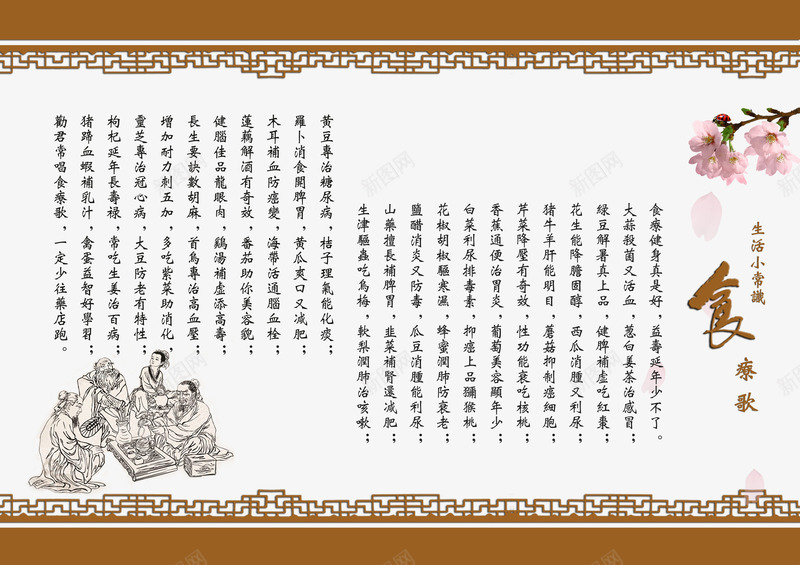 生活小常識
食
療歌
食療健身真是好，益壽延年少不了。
大蒜殺菌又活血，蔥白姜茶治感冒；
綠豆解暑真上品，健脾補虛吃紅棗；
花生能降膽固醇，西瓜消腫又利尿；
豬牛羊肝能明目，蘑菇抑制癌細胞；
芹菜降壓有奇效，性功能衰吃核桃；
香蕉通便治胃炎，葡萄美容顯年少；
白菜利尿排毒素，抑癌上品獼猴桃；
花椒胡椒驅寒濕，蜂蜜潤肺防衰老；
鹽醋消炎又防毒，瓜豆消腫能利尿；
山藥擅長補脾胃，韭菜補腎還減肥；
生津驅蟲吃烏梅，軟梨潤肺治咳嗽；
黃豆專治糖尿病，桔子理氣能化痰；
羅卜消食開脾胃，黃瓜爽口又減肥；
木耳補血防癌變，海帶活通腦血栓；
蓮藕解酒有奇效，番茄助你美容貌；
健腦佳品龍眼肉，鷄湯補虛添高壽；
長生要訣數胡麻，首烏專治高血壓；
增加耐力刺五加，多吃紫菜助消化，
靈芝專治冠心病，大豆防老有特性；
枸杞延年長壽祿，常吃生姜治百病；
豬蹄血蝦補乳汁，禽蛋益智好學習；
勸君常唱食療歌，一定少往藥店跑。